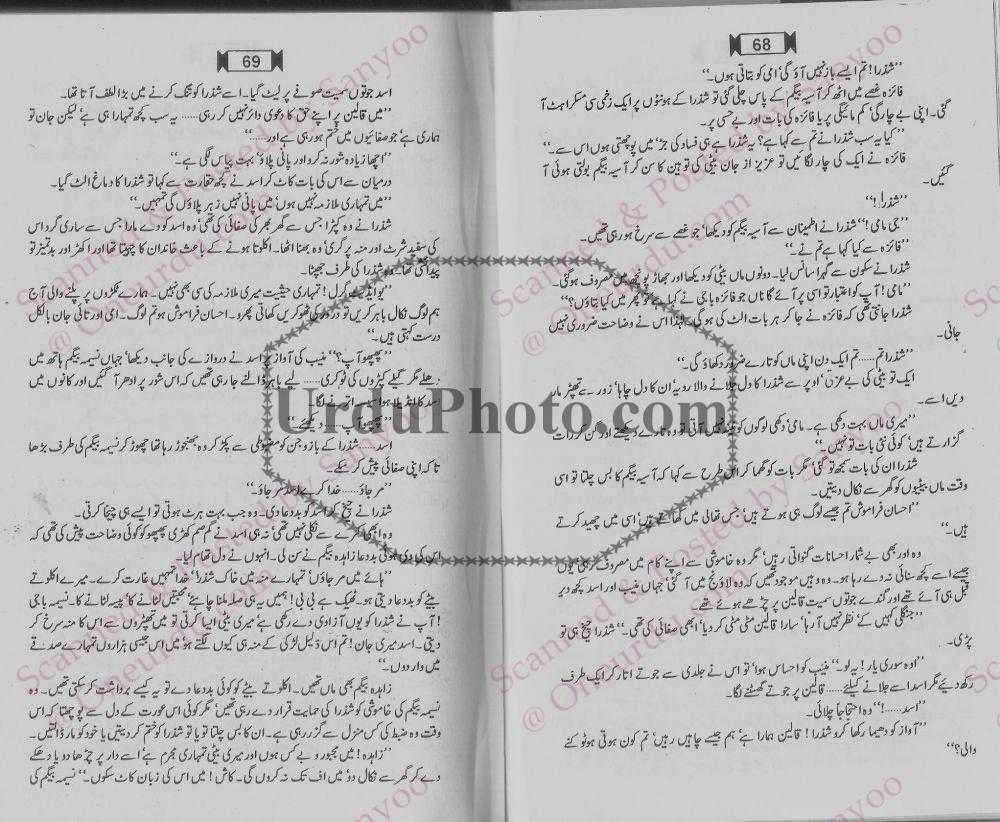 68
”شذرا! تم ایسے باز نہیں آؤ گی‘ امی کو بتاتی ہوں۔“
فائزہ غصے میں اٹھ کر آسیہ بیگم کے پاس چلی گئی تو شذرا کے ہونٹوں پر ایک زخمی سی مسکراہٹ آ
گئی۔ اپنی بے چارگی‘ کم مائیگی پر یا فائزہ کی بات اور بے حسی پر۔
”کیا یہ سب شذرا نے تم سے کہا ہے؟ یہ شذرا ہے ہی فساد کی جڑ‘ میں پوچھتی ہوں اس سے۔“
فائزہ نے ایک کی چار لگائیں تو عزیز از جان بیٹی کی توہین کا سن کر آسیہ بیگم بولتی ہوئی آ
گئیں۔
”شذرا!“
”جی مامی!“ شذرا نے اطمینان سے آسیہ بیگم کو دیکھا‘ جو غصے سے سرخ ہو رہی تھیں۔
”فائزہ سے کیا کہا ہے تم نے۔“
شذرا نے سکون سے گہرا سانس لیا۔ دونوں ماں بیٹی کو دیکھا اور جھاڑ پونچھ میں مصروف ہو گئی۔
”مامی! آپ کو اعتبار تو اسی پر آئے گا ناں جو فائزہ باجی نے کہا ہے تو پھر میں کیا بتاؤں؟“
شذرا جانتی تھی کہ فائزہ نے جا کر ہر بات الٹ کی ہو گی۔ لہٰذا اس نے وضاحت ضروری نہیں
جانی۔
”شذرا تم...... تم ایک دن اپنی ماں کو تارے ضرور دکھاؤ گی۔“
ایک تو بیٹی کی بے عزتی‘ اوپر سے شذرا کا دل جلانے والا رویہ‘ ان کا دل چاہا‘ زور سے تھپڑ مار
دیں اسے۔
”میری ماں بہت دکھی ہے۔ مامی‘ دکھی لوگوں کو نیند نہیں آتی تو وہ تارے دیکھتے اور گن کر رات
گزارتے ہیں‘ کوئی نئی بات تو نہیں۔“
شذرا ان کی بات سمجھ تو گئی‘ مگر بات کو گھما کر اس طرح سے کہا کہ آسیہ بیگم کا بس چلتا تو اسی
وقت ماں بیٹیوں کو گھر سے نکال دیتیں۔
”احسان فراموش تم جیسے لوگ ہی ہوتے ہیں‘ جس تھالی میں کھاتے ہیں‘ اسی میں چھید کرتے
ہیں۔“
وہ اور بھی بے شمار احسانات گنواتی رہیں‘ مگر وہ خاموشی سے اپنے کام میں مصروف رہی یوں
جیسے اسے کچھ سنائی نہ دے رہا ہو۔ وہ وہیں موجود تھیں کہ وہ لاؤنج میں آ گئی‘ جہاں منیب اور اسد کچھ دیر
قبل ہی آئے تھے اور گندے جوتوں سمیت قالین پر چڑھے ہوئے تھے۔
”جنگلی کہیں کے نظر نہیں آ رہا‘ سارا قالین مٹی مٹی کر دیا‘ ابھی صفائی کی تھی۔“ شذرا چیخ ہی تو
پڑی۔
”اوہ سوری یار! یہ لو۔“ منیب کو احساس ہوا‘ تو اس نے جلدی سے جوتے اتار کر ایک طرف
رکھ دیے مگر اسد اسے جلانے کیلئے...... قالین پر جوتے گھسنے لگا۔
”اسد......!“ وہ احتجاجاً چلائی۔
”آواز کو دھیما رکھا کرو شذرا! قالین ہمارا ہے‘ ہم جیسے چاہیں رہیں‘ تم کون ہوتی ہو ٹوکنے
والی؟“
69
اسد جوتوں سمیت صوفے پر لیٹ گیا۔ اسے شذرا کو تنگ کرنے میں بڑا لطف آتا تھا۔
”میں قالین پر اپنے حق کا دعویٰ دائر نہیں کر رہی...... یہ سب کچھ تمہارا ہی ہے‘ لیکن جان تو
ہماری ہے‘ جو صفائیوں میں ختم ہو رہی ہے اور......“
”اچھا زیادہ شور نہ کرو اور پانی پلاؤ‘ بہت پیاس لگی ہے۔“
درمیان سے اس کی بات کاٹ کر اسد نے کچھ حقارت سے کہا تو شذرا کا دماغ الٹ گیا۔
”میں تمہاری ملازمہ نہیں ہوں‘ میں پانی نہیں زہر پلاؤں گی تمہیں۔“
شذرا نے وہ کپڑا جس سے گھر بھر کی صفائی کی تھی‘ وہ اسد کو دے مارا جس سے ساری گرد اس
کی سفید شرٹ اور منہ پر گری‘ وہ بھنا اٹھا۔ اکلوتا ہونے کے باعث خاندان کا چہیتا تھا اور اکھڑ اور بدتمیز تو
پیدائشی تھا۔ وہ شذرا کی طرف جھپٹا۔
”یو ایڈیٹ گرل! تمہاری حیثیت میری ملازمہ کی سی بھی نہیں۔ ہمارے ٹکڑوں پر پلنے والی آج
ہم لوگ نکال باہر کریں تو در در کی ٹھوکریں کھاتی پھرو۔ احسان فراموش ہو تم لوگ۔ امی اور تائی جان بالکل
درست کہتی ہیں۔“
”پھپھو آپ؟“ منیب کی آواز پر اسد نے دروازے کی جانب دیکھا‘ جہاں نسیمہ بیگم ہاتھ میں
دھلے مگر گیلے کپڑوں کی ٹوکری...... لیے باہر ڈالنے جا رہی تھیں کہ اس شور پر ادھر آ گئیں اور کانوں میں
اسد کا انڈیلا ہوا سیسہ اترنے لگا۔
”پھپھو آپ دیکھئے“
اسد...... شذرا کے بازو جن کو مضبوطی سے پکڑ کر وہ جھنجوڑ رہا تھا چھوڑ کر نسیمہ بیگم کی طرف بڑھا
تا کہ اپنی صفائی پیش کر سکے۔
”مر جاؤ...... خدا کرے اسد مر جاؤ۔“
شذرا نے چیخ کر اسد کو بددعا دی۔ وہ جب بہت ہرٹ ہوتی تو ایسے ہی چیخا کرتی۔
وہ ابھی کمرے سے نکلی نہیں تھی‘ نہ ہی اسد نے گم صم کھڑی پھپھو کو کوئی وضاحت پیش کی تھی کہ
اس کی دی ہوئی بددعا زاہدہ بیگم نے سن لی۔ انہوں نے دل تھام لیا۔
”ہائے میں مر جاؤں‘ تمہارے منہ میں خاک شذرا‘ خدا تمہیں غارت کرے۔ میرے اکلوتے
بیٹے کو بددعا دیتی ہو۔ ٹھیک ہے بی بی! ہمیں یہ ہی صلہ ملنا چاہئے‘ محبتیں لٹانے کا‘ پیسہ لٹانے کا۔ نسیمہ باجی
! آپ نے شذرا کو یوں آزادی دے رکھی ہے‘ میری بیٹی ایسا کرتی تو میں تھپڑوں سے اس کا منہ سرخ کر
دیتی۔ اسد میری جان! تم اس ذلیل لڑکی کے منہ ہی کیوں لگتے ہو‘ میں اس جیسی ہزاروں تمہارے صدقے
میں وار دوں۔“
زاہدہ بیگم بھی ماں تھیں۔ اکلوتے بیٹے کو کوئی بددعا دے تو یہ کیسے برداشت کر سکتی تھیں۔ وہ
نسیمہ بیگم کی خاموشی کو شذرا کی حمایت قرار دے رہی تھیں‘ مگر کوئی اس عورت کے دل سے پوچھتا کہ اس
وقت وہ ضبط کی کس منزل سے گزر رہی ہے۔ ان کا بس چلتا تو یا تو شذرا کو ختم کر دیتیں یا خود کو مار ڈالتیں۔
”زاہدہ! میں مجبور و بے کس ہوں اور میری بیٹی تمہاری مجرم ہے‘ اسے دار پر چڑھا دو یا دھکے
دے کر گھر سے نکال دو‘ میں اف تک نہ کروں گی۔ کاش! میں اس کی زبان کاٹ سکوں۔“ نسیمہ بیگم کی
UrduPhoto.com
Scanned & Posted by Sanyoo
@ Oneurdu.com